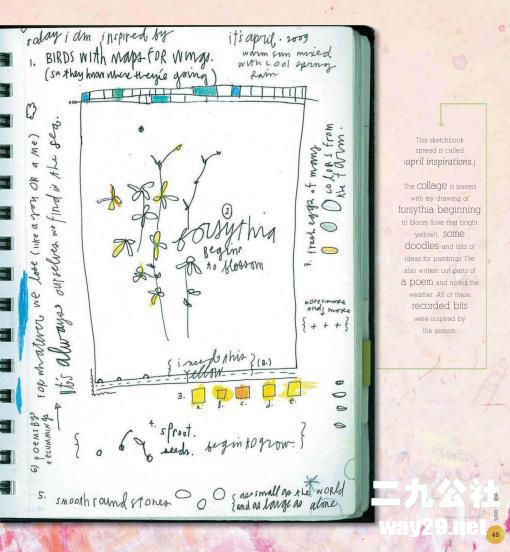 today i am inspired by
it's april. 2009
warm sun mixed
with cool spring
rain
1. BIRDS with MAPS FOR WINGS.
(so they know where they're going)
for whatever we lose (like a you OR a me)
it's always ourselves we find in the sea.
6) poems by
e e cummings
2
forsythia
begins
to blossom
7. fresh eggs of many
colors from
the farm.
more & more
and more
{ + + + }
{ i need this
yellow } (B.)
3.
a. b. c. d. e.
4. sprout.
seeds.
begin to grow. }
5. smooth round stones
{ as small as the world
{ and as large as alone
This sketchbook
spread is called
{april inspirations.}
The collage is paired
with my drawing of
forsythia beginning
to bloom (love that bright
yellow!), some
doodles and lists of
ideas for paintings. I've
also written out parts of
a poem and noted the
weather. All of these
recorded bits
were inspired by
the season.
二九公社
way29.net
45